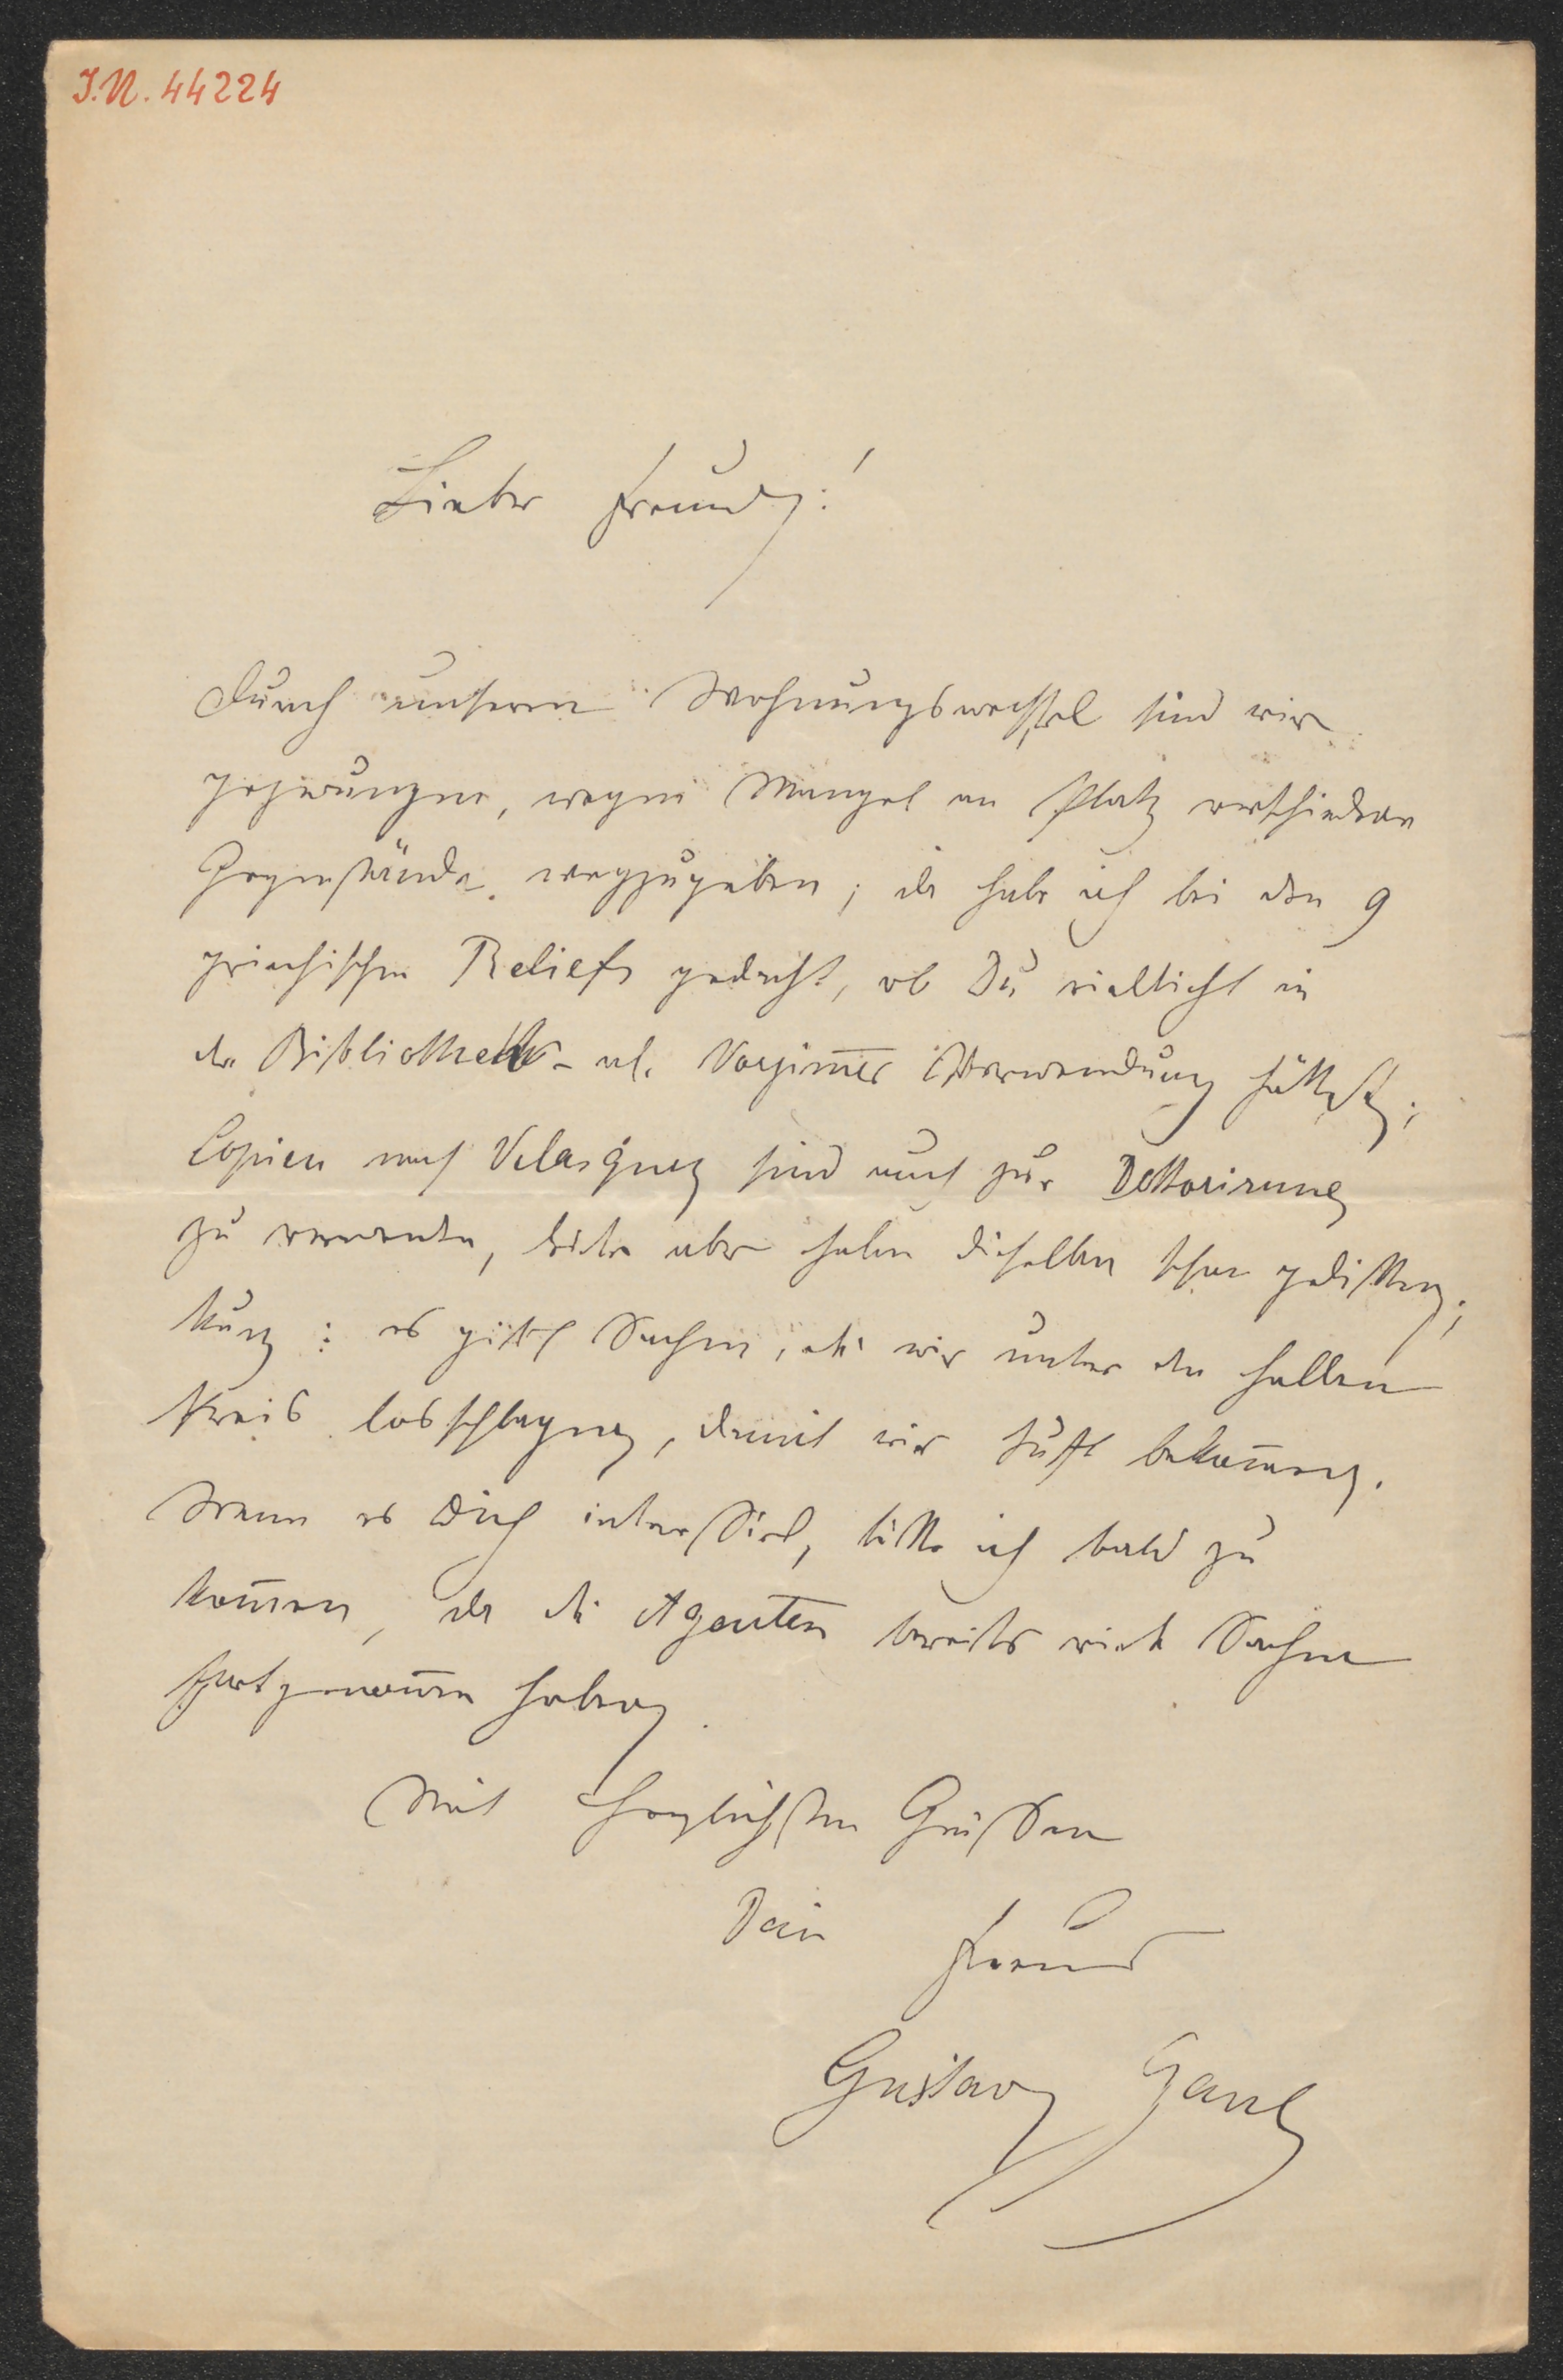 I.N. 44224
Lieber Freund!
Durch unseren Wohnungswechsel sind wir
gezwungen, wegen Mangel an Platz verschiedene
Gegenstände wegzugeben; da habe ich bei den 9
griechischen Reliefs gedacht, ob Du vielleicht in
der Bibliothek- od. Vorzim̅er Verwendung hättest;
Copien nach Velasquez sind auch zur Dekorirung
zu verwenden, leider aber haben dieselben schon gelitten;
kurz: es gibt Sachen, die wir unter den halben
Preis losschlagen, damit wir Luft bekom̅en.
Wenn es Dich interessirt, bitte ich bald zu
kom̅en, da die Agenten bereits viele Sachen
fortgenom̅en haben.
Mit herzlichsten Grüssen
Dein Freund
Gustav Gaul